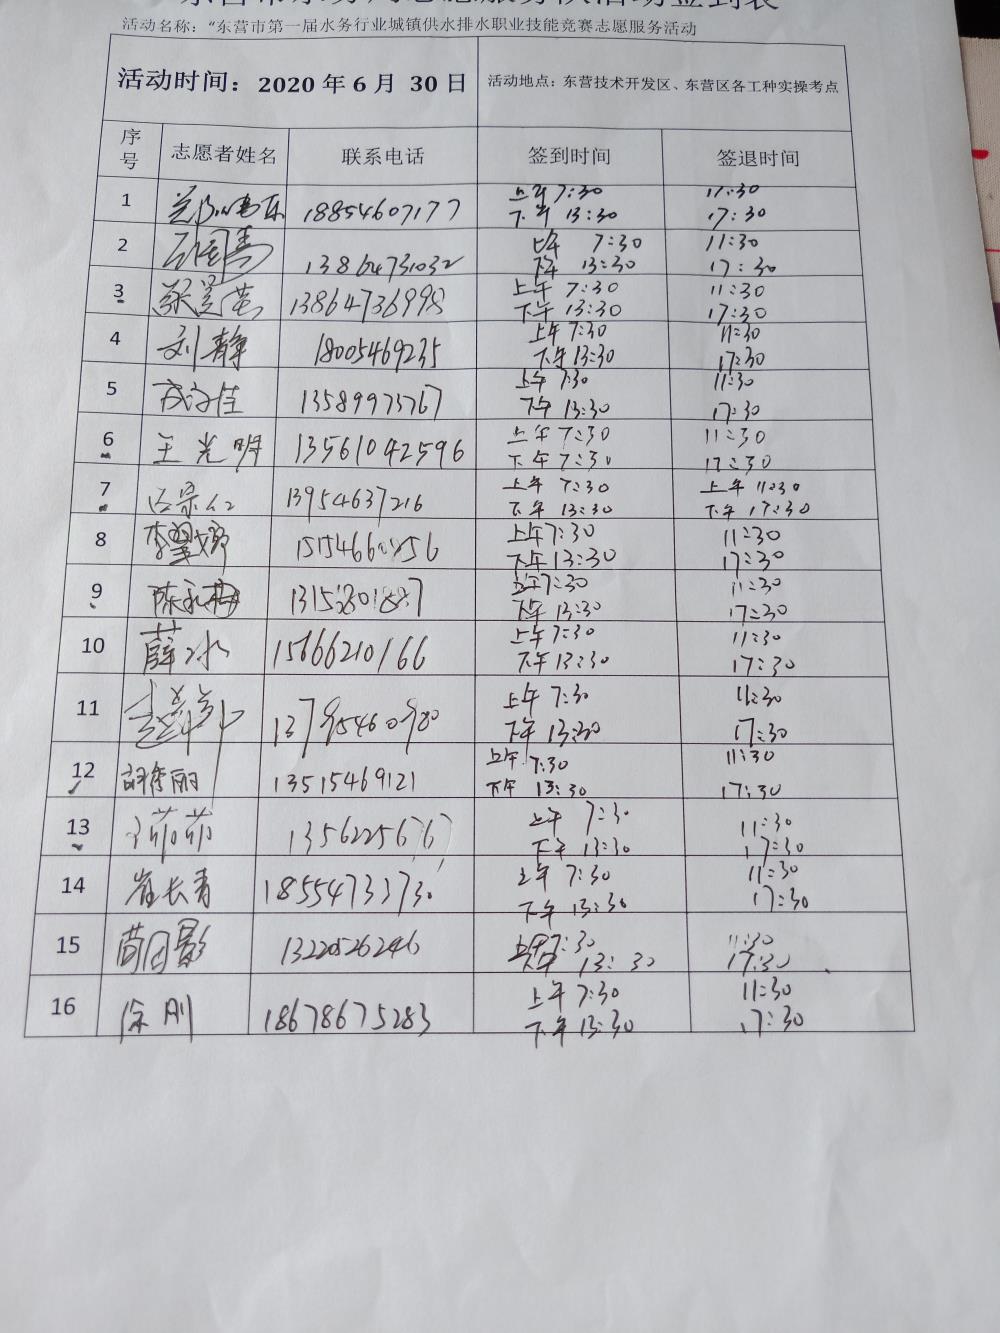 活动名称：“东营市第一届水务行业城镇供水排水职业技能竞赛志愿服务活动
活动时间：2020年6月 30日 活动地点：东营技术开发区、东营区各工种实操考点
序号 志愿者姓名 联系电话 签到时间 签退时间
1 18854607177 上午 7:30 11:30
下午 13:30 17:30
2 13864731032 上午 7:30 11:30
下午 13:30 17:30
3 13864736998 上午 7:30 11:30
下午 13:30 17:30
4 刘静 18005469235 上午 7:30 11:30
下午 13:30 17:30
5 13589973767 上午 7:30 11:30
下午 13:30 17:30
6 王光明 13561042596 上午 7:30 11:30
下午 7:30 17:30
7 13954637216 上午 7:30 上午 11:30
下午 13:30 下午 17:30
8 上午 7:30 11:30
下午 13:30 17:30
9 陈永梅 上午 7:30 11:30
下午 13:30 17:30
10 薛冰 15666210166 上午 7:30 11:30
下午 13:30 17:30
11 上午 7:30 11:30
下午 13:30 17:30
12 胡秀丽 13515469121 上午 7:30 11:30
下午 13:30 17:30
13 上午 7:30 11:30
下午 13:30 17:30
14 崔长青 18554733730 上午 7:30 11:30
下午 13:30 17:30
15 13220526246 7:30 11:30
13:30 17:30
16 徐刚 18678675283 上午 7:30 11:30
下午 13:30 17:30